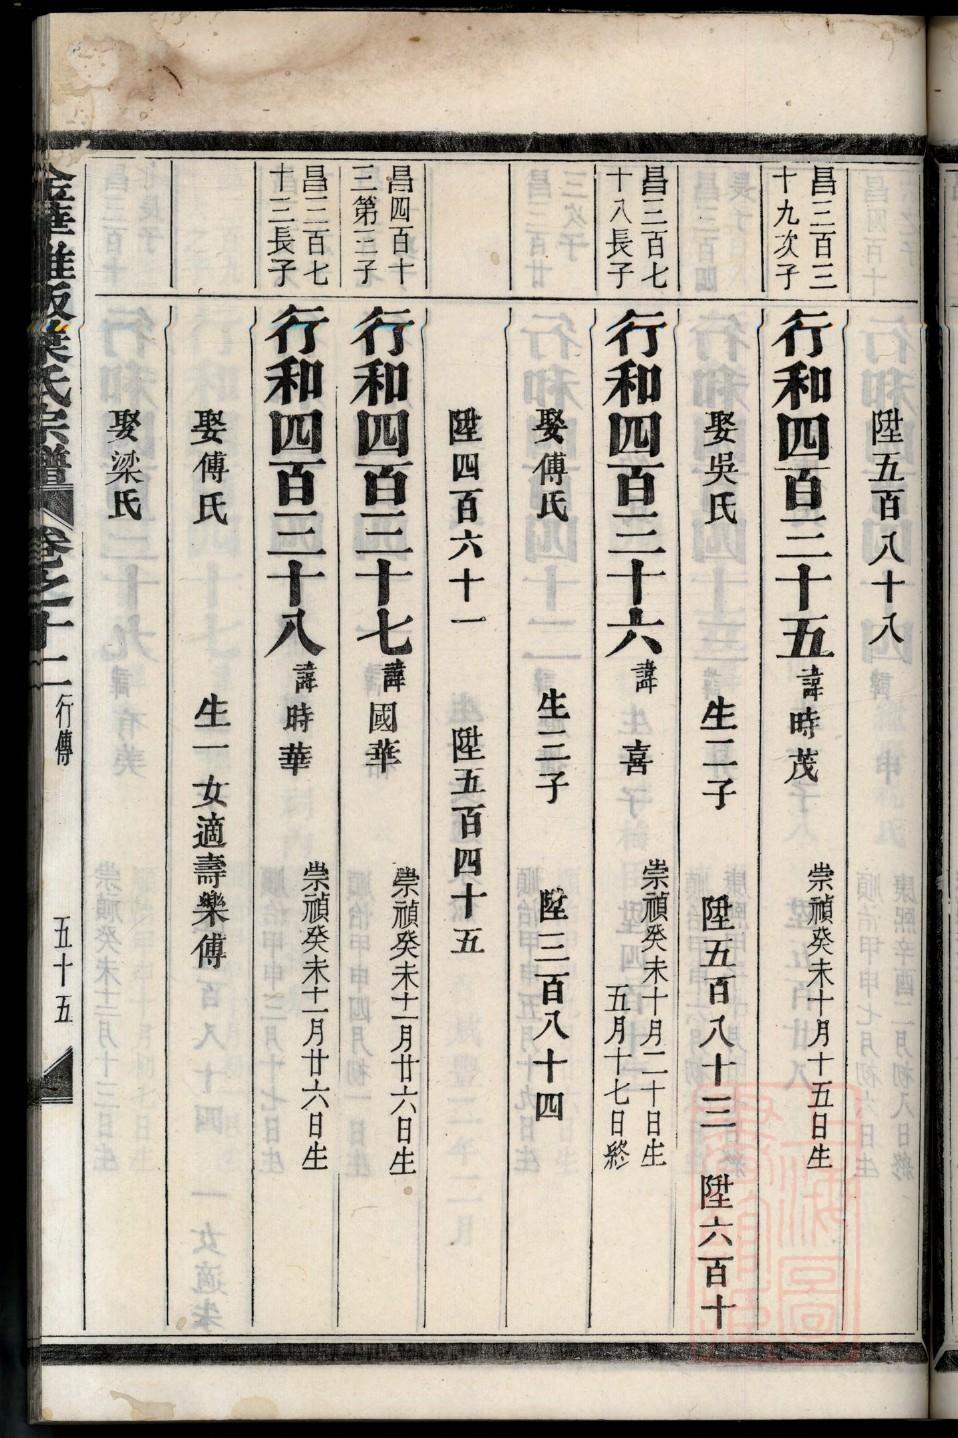 陞五百八十八
昌三百三十九次子
行和四百三十五 諱時茂 崇禎癸未十月十五日生
娶吳氏 生二子 陞五百八十三 陞六百十
昌三百七十八長子
行和四百三十六 諱喜 崇禎癸未十月二十日生 五月十七日終
娶傅氏 生三子 陞三百八十四
陞四百六十一 陞五百四十五
昌四百十三第三子
行和四百三十七 諱國華 崇禎癸未十一月廿六日生
昌三百七十三長子
行和四百三十八 諱時華 崇禎癸未十一月廿六日生
娶傅氏 生一女適壽樂傅
娶梁氏
葉氏宗譜 卷之十二 行傳 五十五